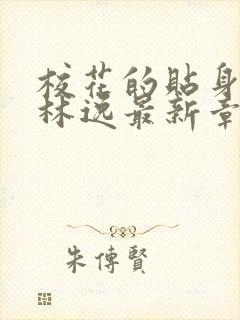 校花的貼身
林逸最新章
朱傳賢